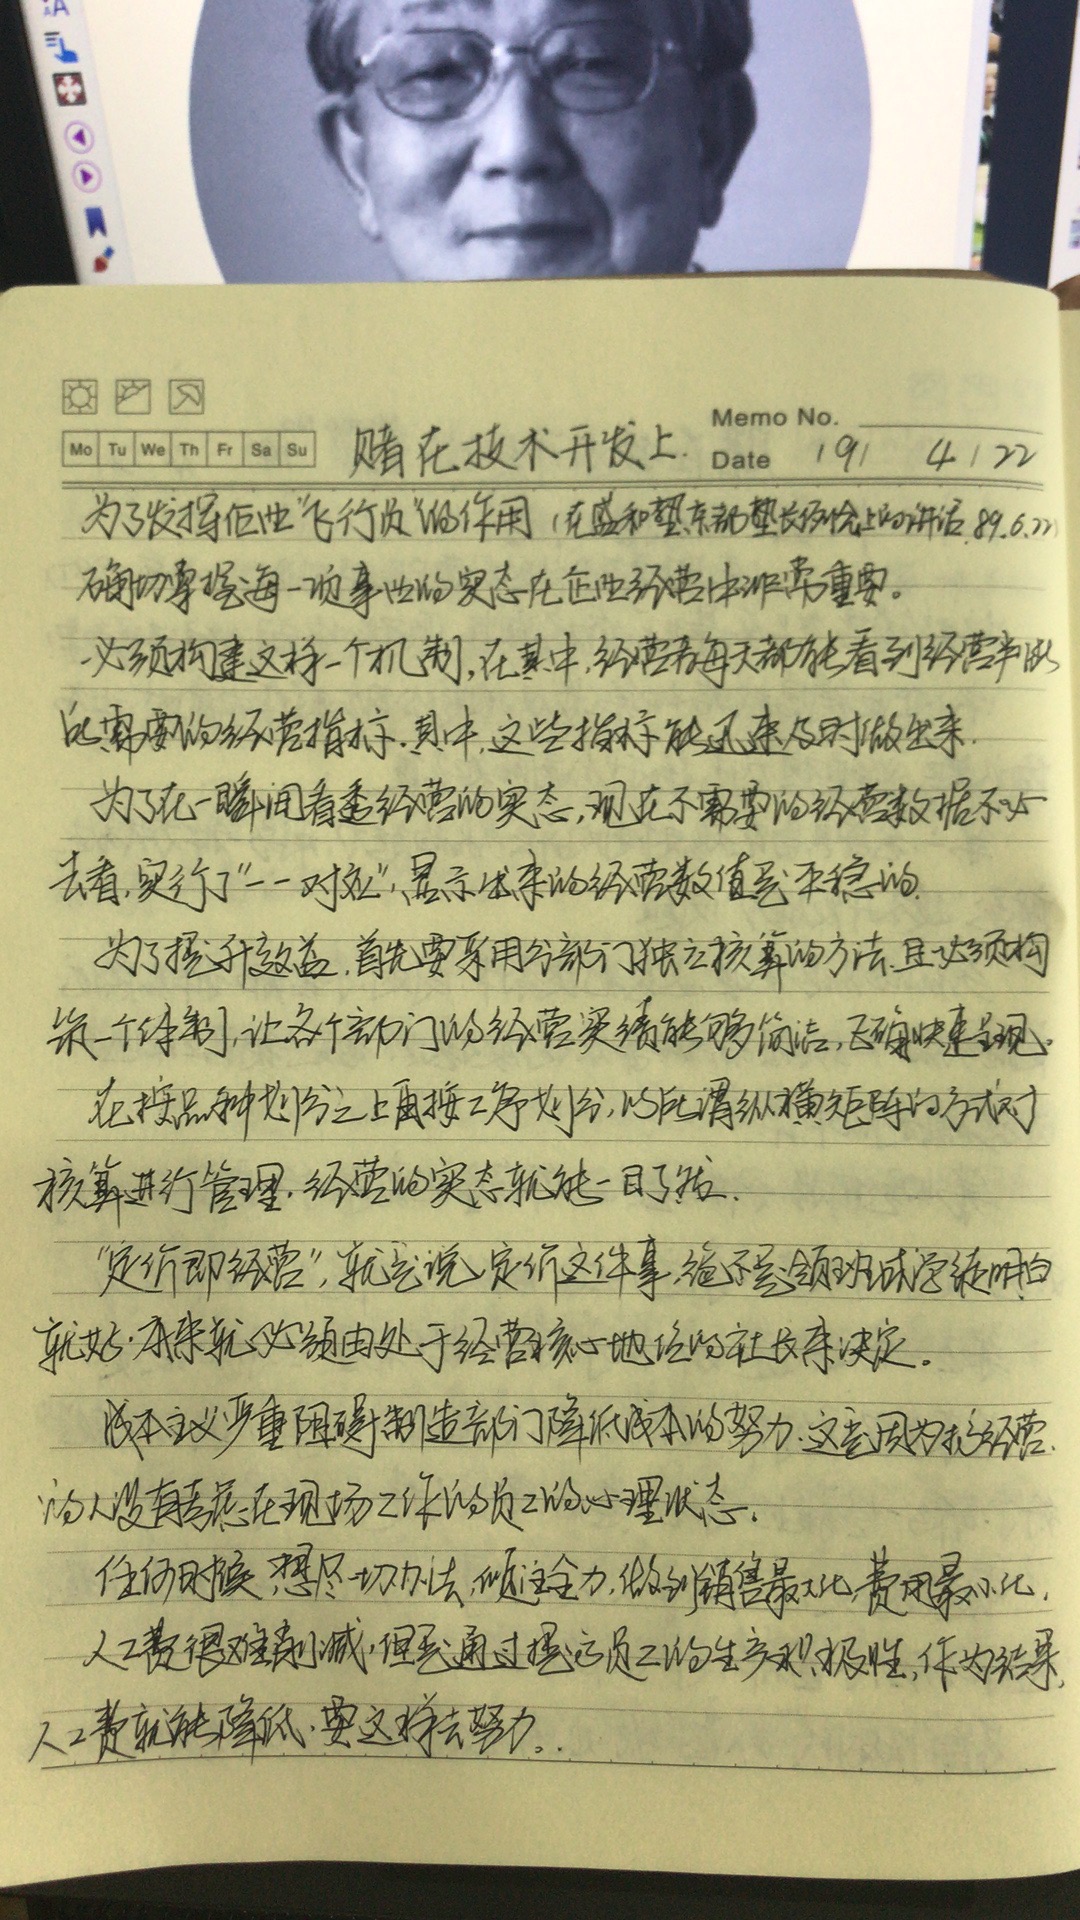 Memo No.
Mo Tu We Th Fr Sa Su
赌在技术开发上.
Date 19/ 4/22
为了发挥企业“飞行员”的作用(在盛和塾东部塾长例会上的讲话.89.6.22)
确切掌握每一项事业的实态在企业经营中非常重要。
必须构建这样一个机制,在其中,经营者每天都能看到经营判断
所需要的经营指标.其中,这些指标能迅速及时做出来.
为了在一瞬间看透经营的实态,现在不需要的经营数据不必
去看,实行了“一一对应”,显示出来的经营数值是平稳的.
为了提升效益,首先要采用分部门独立核算的方法,且必须构
筑一个体制,让各个部门的经营实绩能够简洁,正确快速呈现.
在按品种划分之上再按工序划分,以所谓纵横矩阵的方式对
核算进行管理,经营的实态就能一目了然.
“定价即经营”,就是说,定价这件事,绝不是领班或学徒明白
就好.本来就必须由处于经营核心地位的社长来决定。
成本主义严重阻碍制造部门降低成本的努力.这是因为搞经营
的人没有考虑在现场工作的员工的心理状态.
任何时候,想尽一切办法,倾注全力,做到销售最大化,费用最小化.
人工费很难削减,但是通过提高员工的生产积极性,作为结果,
人工费就能降低.要这样去努力。